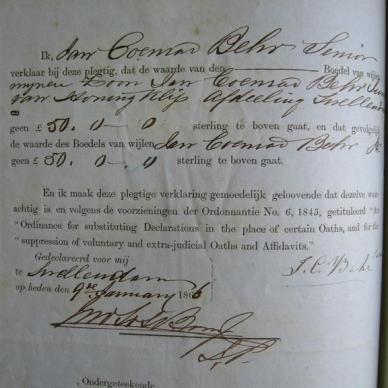 Ik, Jan Coenrad Behr Senior
verklaar bij deze plegtig, dat de waarde van den Boedel van wijlen
mynen Zoon Jan Coenrad Behr Jun
van Honing Klip Afdeeling Swellend
geen £ 50. 0 - 0 sterling te boven gaat, en dat gevolgelijk
de waarde des Boedels van wijlen Jan Coenrad Behr Jr
geen £ 50. 0 - 0 sterling te boven gaat.
En ik maak deze plegtige verklaring gemoedelijk geloovende dat dezelve waar-
achtig is en volgens de voorzieningen der Ordonnantie No. 6, 1845, getituleerd "An
"Ordinance for substituting Declarations in the place of certain Oaths, and for the
"suppression of voluntary and extra-judicial Oaths and Affidavits."
Gedeclareerd voor mij
te Swellendam
J. C. Behr
op heden den 9de January 1866
J.P.
Ondergeteekende